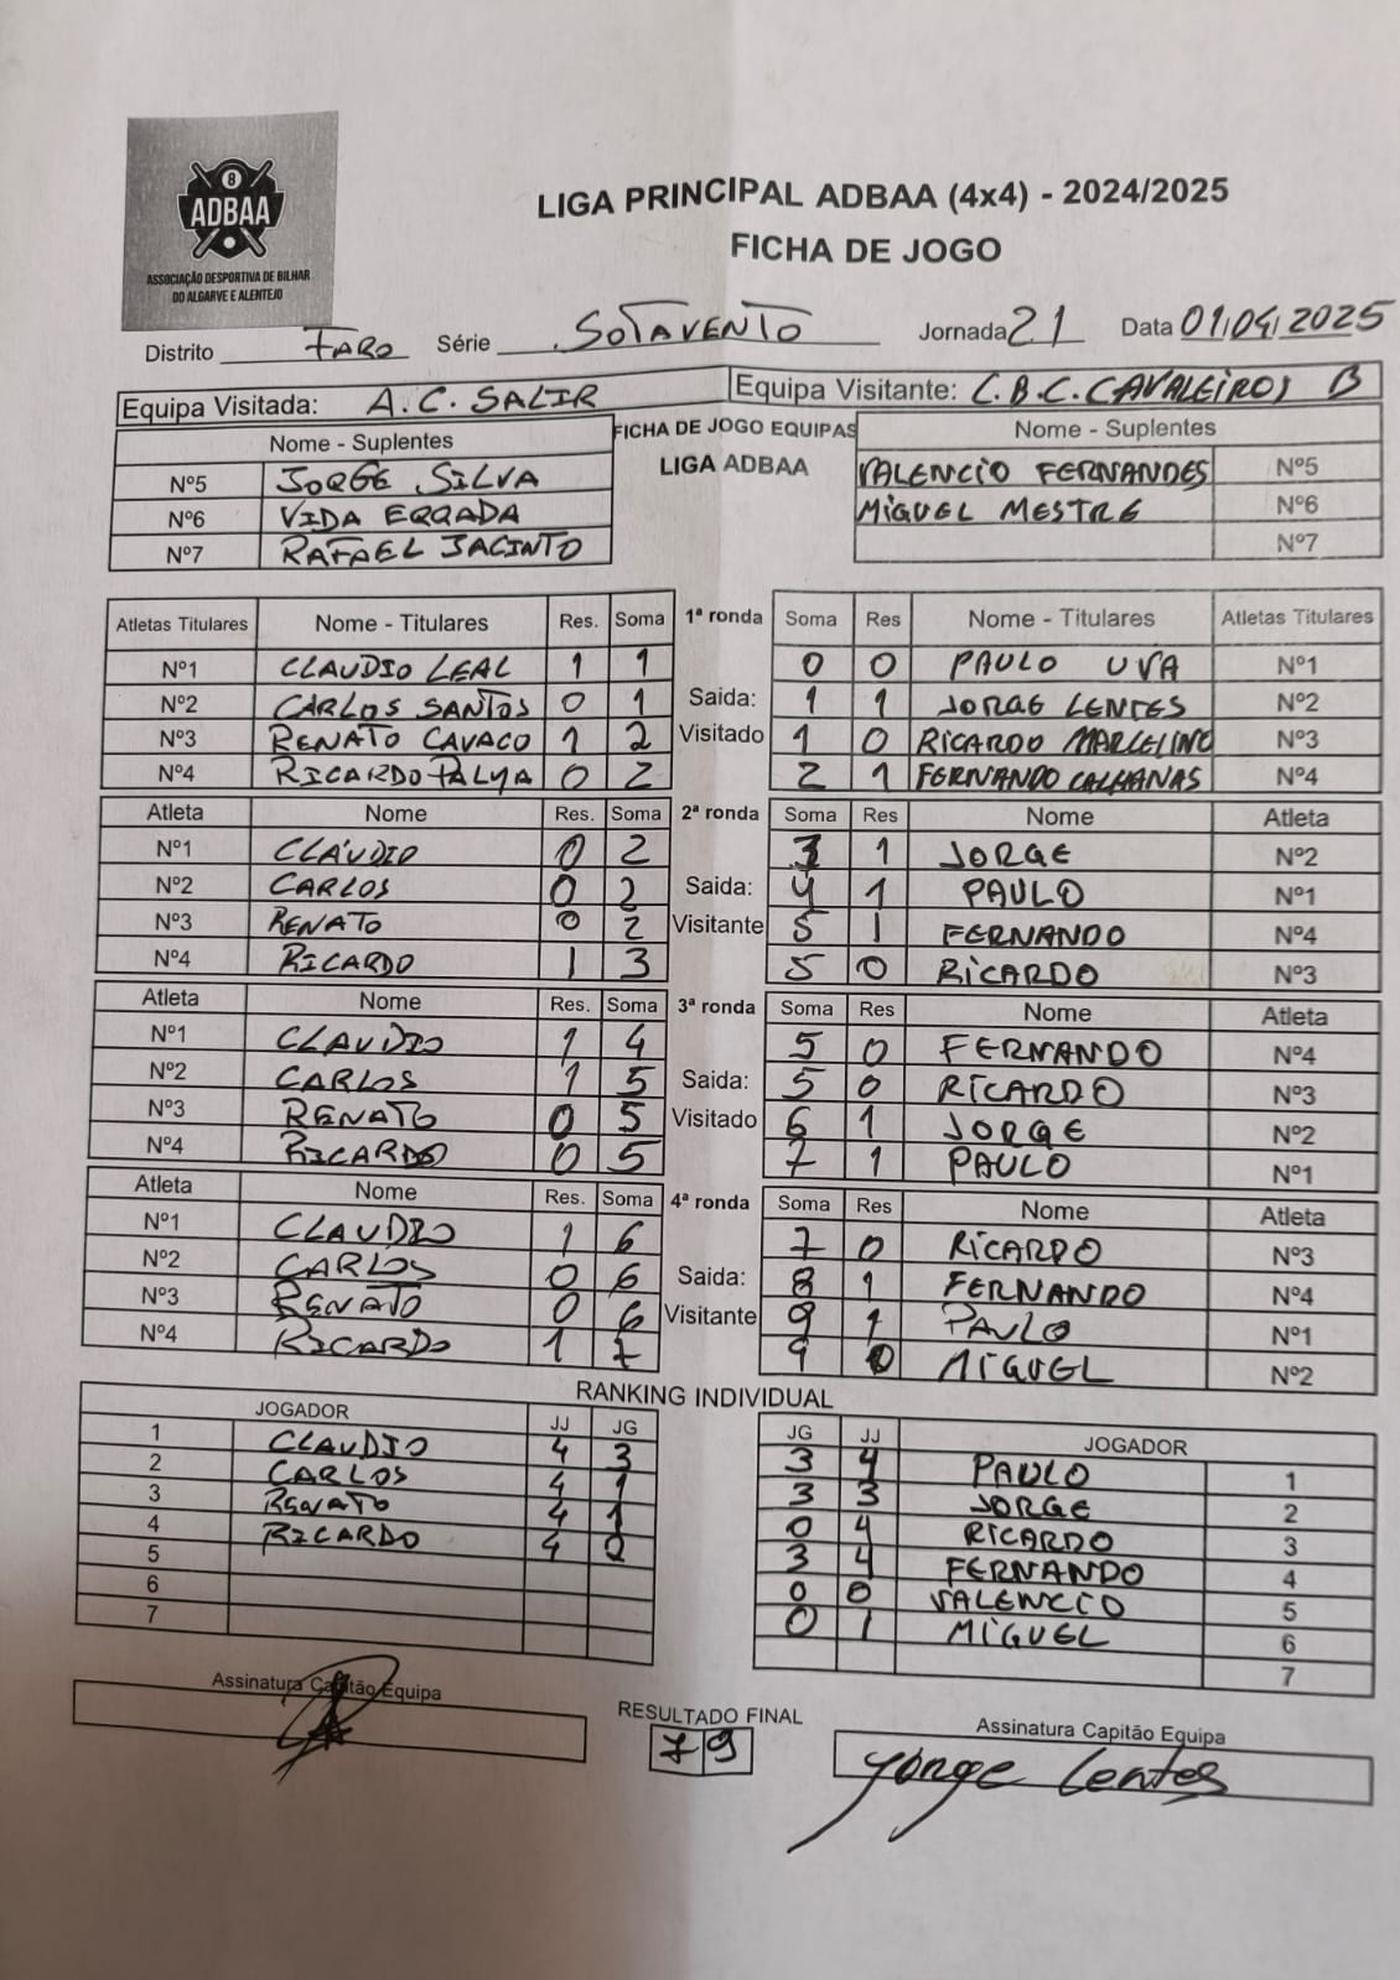 8
ADBAA
ASSOCIAÇÃO DESPORTIVA DE BILHAR
DO ALGARVE E ALENTEJO
LIGA PRINCIPAL ADBAA (4x4) - 2024/2025
FICHA DE JOGO
Distrito FARO Série SOTAVENTO Jornada 21 Data 01/04/2025
Equipa Visitada: A.C. SALIR Equipa Visitante: C.B.C. CAVALEIROS B
Nome - Suplentes FICHA DE JOGO EQUIPAS Nome - Suplentes
LIGA ADBAA
Nº5 JORGE SILVA VALENCIO FERNANDES Nº5
Nº6 VIDA ERRADA MIGUEL MESTRE Nº6
Nº7 RAFAEL JACINTO Nº7
Atletas Titulares Nome - Titulares Res. Soma 1ª ronda Soma Res Nome - Titulares Atletas Titulares
Nº1 CLAUDIO LEAL 1 1 0 0 PAULO UVA Nº1
Nº2 CARLOS SANTOS 0 1 Saida: 1 1 JORGE LENTES Nº2
Nº3 RENATO CAVACO 1 2 Visitado 1 0 RICARDO MARCELINO Nº3
Nº4 RICARDO PALMA 0 2 2 1 FERNANDO CALHANAS Nº4
Atleta Nome Res. Soma 2ª ronda Soma Res Nome Atleta
Nº1 CLÁUDIO 0 2 3 1 JORGE Nº2
Nº2 CARLOS 0 2 Saida: 4 1 PAULO Nº1
Nº3 RENATO 0 2 Visitante 5 1 FERNANDO Nº4
Nº4 RICARDO 1 3 5 0 RICARDO Nº3
Atleta Nome Res. Soma 3ª ronda Soma Res Nome Atleta
Nº1 CLAUDIO 1 4 5 0 FERNANDO Nº4
Nº2 CARLOS 1 5 Saida: 5 0 RICARDO Nº3
Nº3 RENATO 0 5 Visitado 6 1 JORGE Nº2
Nº4 RICARDO 0 5 7 1 PAULO Nº1
Atleta Nome Res. Soma 4ª ronda Soma Res Nome Atleta
Nº1 CLAUDIO 1 6 7 0 RICARDO Nº3
Nº2 CARLOS 0 6 Saida: 8 1 FERNANDO Nº4
Nº3 RENATO 0 6 Visitante 9 1 PAULO Nº1
Nº4 RICARDO 1 7 9 0 MIGUEL Nº2
RANKING INDIVIDUAL
JOGADOR JJ JG JG JJ JOGADOR
1 CLAUDIO 4 3 3 4 PAULO 1
2 CARLOS 4 1 3 3 JORGE 2
3 RENATO 4 1 0 4 RICARDO 3
4 RICARDO 4 2 3 4 FERNANDO 4
5 0 0 VALENCIO 5
6 0 1 MIGUEL 6
7 7
Assinatura Capitão Equipa RESULTADO FINAL Assinatura Capitão Equipa
7 9 Jorge Lentes